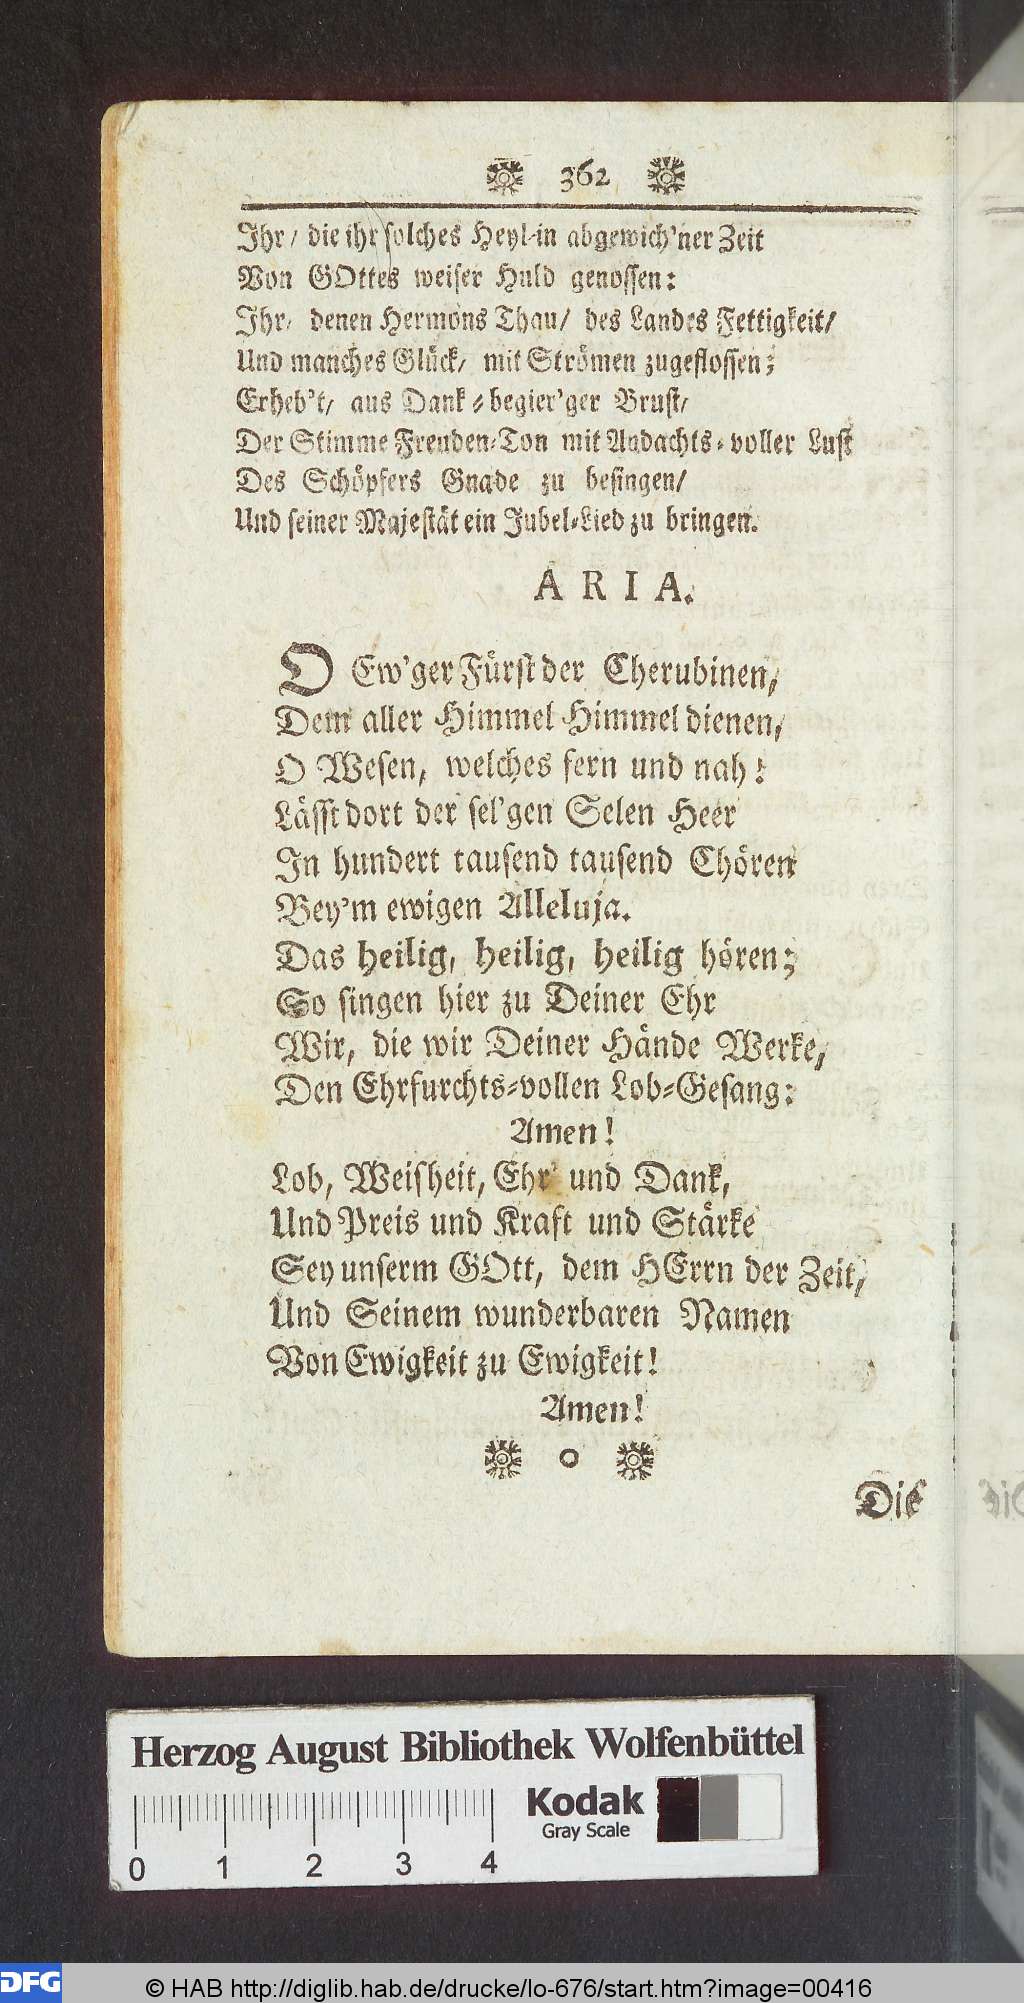 362
Ihr/ die ihr solches Heyl in abgewich'ner Zeit
Von GOttes weiser Huld genossen:
Ihr/ denen Hermons Thau/ des Landes Fettigkeit/
Und manches Glück/ mit Strömen zugeflossen;
Erheb't/ aus Dank-begier'ger Brust/
Der Stimme Freuden-Ton mit Andachts-voller Lust
Des Schöpfers Gnade zu besingen/
Und seiner Majestät ein Jubel-Lied zu bringen.
ARIA.
O Ew'ger Fürst der Cherubinen,
Dem aller Himmel Himmel dienen,
O Wesen, welches fern und nah!
Lässt dort der sel'gen Selen Heer
In hundert tausend tausend Chören
Bey'm ewigen Alleluja.
Das heilig, heilig, heilig hören;
So singen hier zu Deiner Ehr
Wir, die wir Deiner Hände Werke,
Den Ehrfurchts-vollen Lob-Gesang:
Amen!
Lob, Weisheit, Ehr' und Dank,
Und Preis und Kraft und Stärke
Sey unserm GOtt, dem HErrn der Zeit,
Und Seinem wunderbaren Namen
Von Ewigkeit zu Ewigkeit!
Amen!
Die
Herzog August Bibliothek Wolfenbüttel
Kodak
Gray Scale
0 1 2 3 4
DFG
© HAB http://diglib.hab.de/drucke/lo-676/start.htm?image=00416